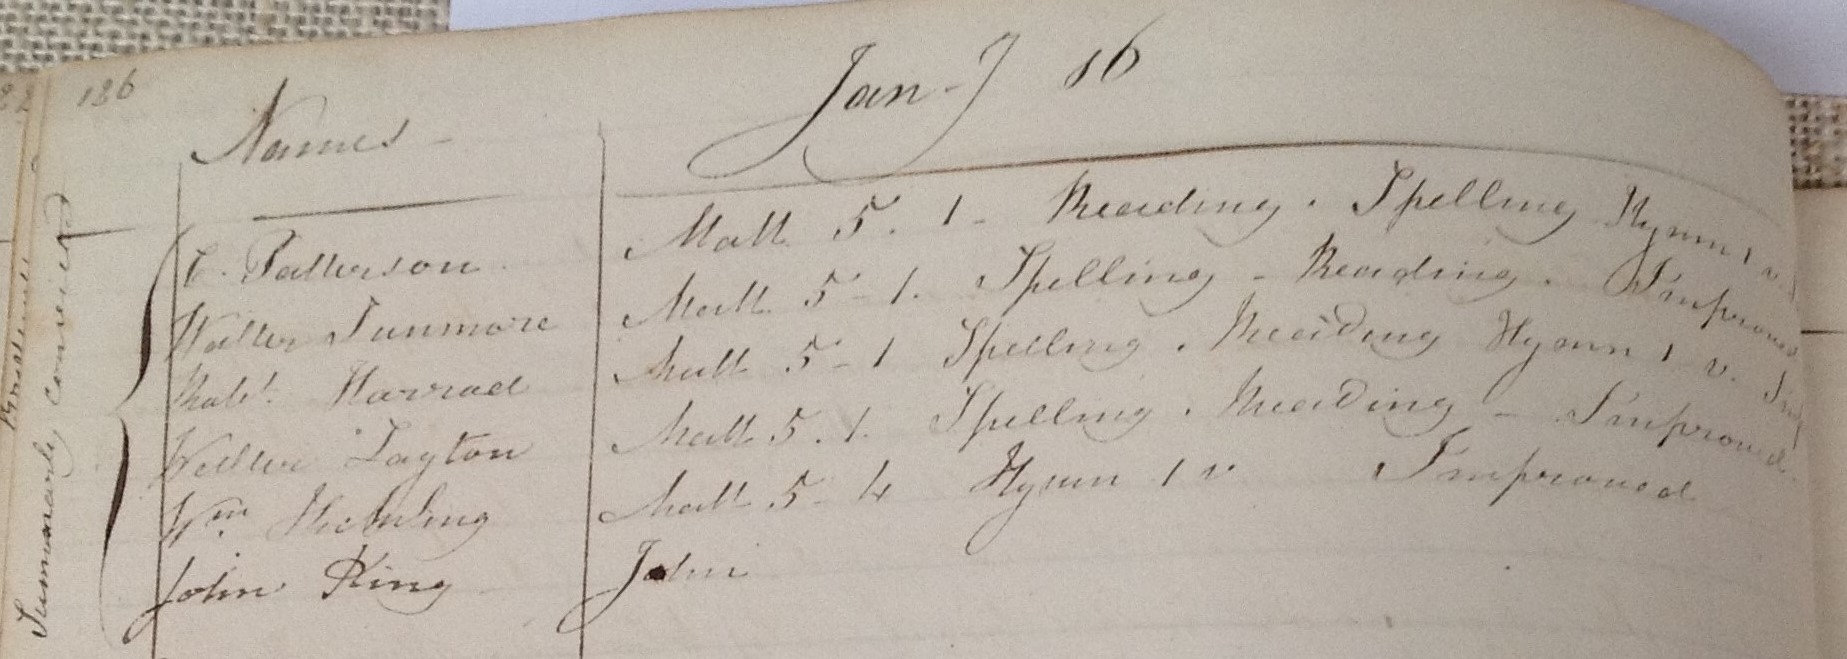 186
Names - Jan - 7 16
Summarily convicted
C. Patterson Matt. 5. 1 - Reading . Spelling Hymn 1 v.
Walter Tunmore Matt. 5 - 1. Spelling - Reading . Improved
Robt. Harrod Matt 5 - 1 Spelling . Reading Hymn 1 v. Imp
Walter Layton Matt. 5 . 1. Spelling . Reading - Improved.
Wm. Matt 5 - 4 Hymn 1 v Improved
John King John